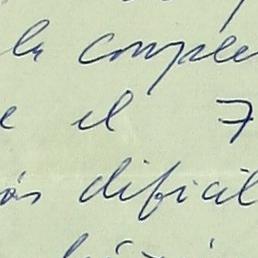 la comple
e el 7
ás dificil